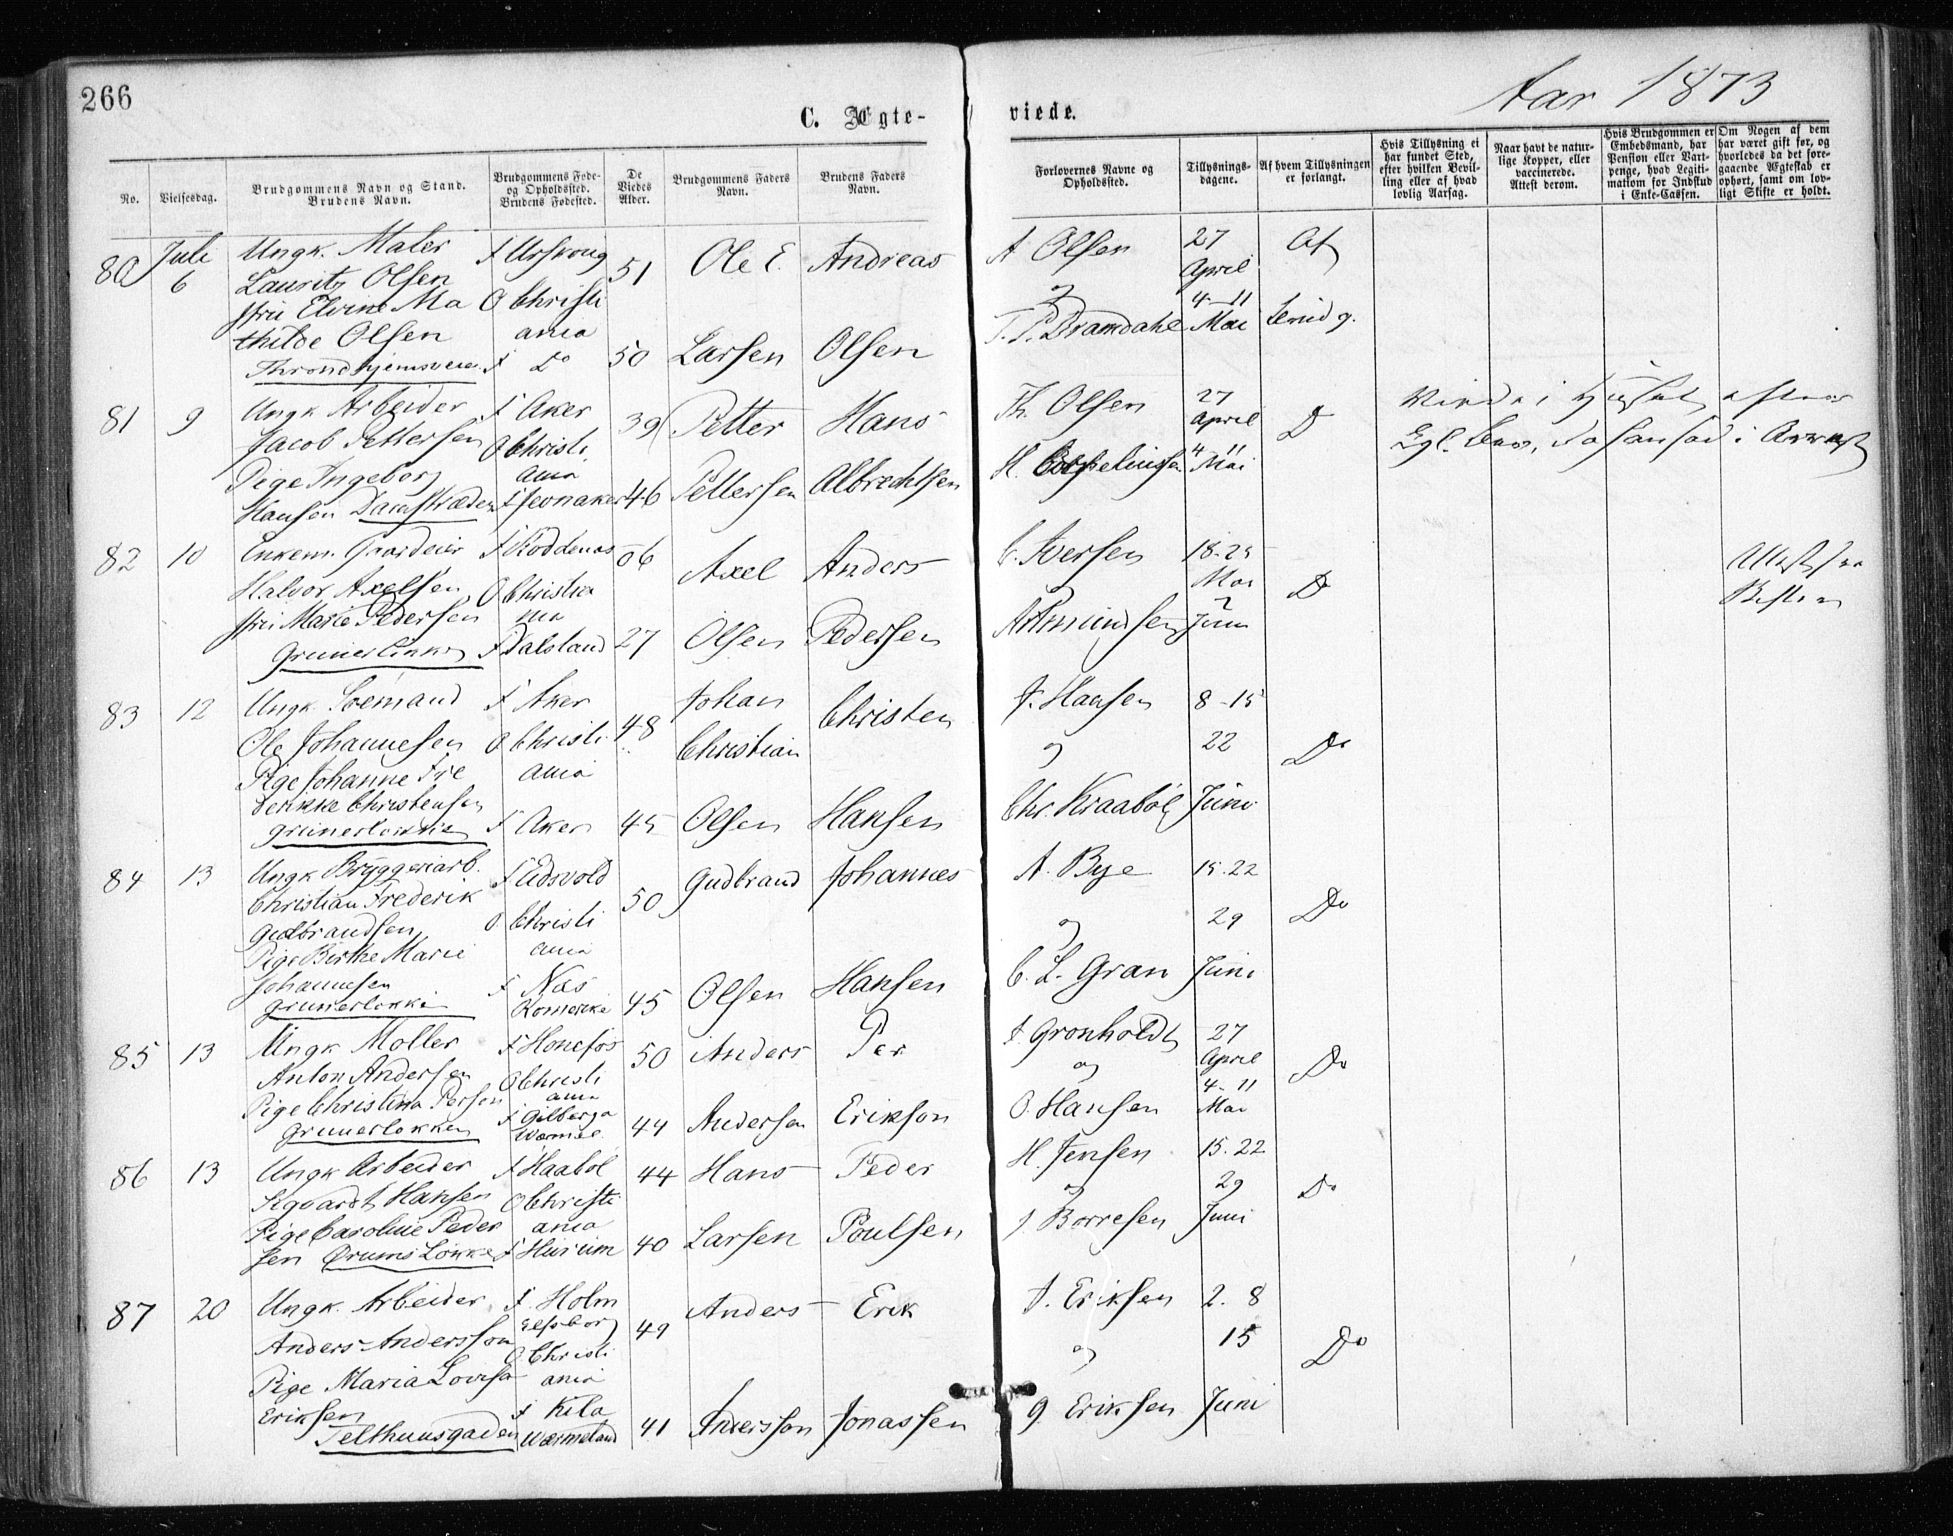 266
Aar 1873
C. Ægte-
viede.
No.
Vielsesdag.
Brudgommens Navn og Stand.
Brudens Navn.
Brudgommens Føde-
og Opholdssted.
Brudens Fødested.
De
Viedes
Alder.
Brudgommens Faders
Navn.
Brudens Faders
Navn.
Forlovernes Navne og
Opholdssted.
Tillysnings-
dagene.
Af hvem Tillysningen
er forlangt.
Hvis Tillysning ei
har fundet Sted,
efter hvilken Bevil-
ling eller af hvad
lovlig Aarsag.
Naar havt de natur-
lige Kopper, eller
vaccinerede.
Attest derom.
Hvis Brudgommen er
Embedsmand, har
Pension eller Vart-
penge, hvad Legiti-
mation for Indskud
i Enke-Cassen.
Om Nogen af dem
har været gift før, og
hvorledes da det fore-
gaaende Ægteskab er
ophørt, samt om lov-
ligt Skifte er holdt.
80 Juli Ungk. Maler F Urskoug 51 Ole E. Andreas A Olsen 27 Af
6 Lauritz Olsen April
Elvine Ma O Christi og 4-11
thilde Olsen ania 50 Larsen Olsen Bramdahl Mai
Throndhjemsveien F Do
81 9 Ungk Arbeider F Aker 39 Petter Hans Th. Olsen 27 Do
Jacob Pettersen O Christi April i
Pige Ingeborg ania 46 Pettersen Albrechtsen H. 4 11 i
Hansen F Jevnaker Mai
82 10 Enkem. Gaardeier F 56 Axel Anders C. Iversen 18-25 Do
Halvor Axelsen O Christia Mai
Marie Pedersen nia 2
Grunerløkken F Dalsland 27 Olsen Pedersen Juni
83 12 Ungk Sømand F Aker 48 Johan Christen J. Hansen 8-15
Ole Johannesen O Christi Christian og 22 Do
Pige Johanne Fre ania
derikke Christensen Chr. Kraabøl Juni
Grünerløkken F Aker 45 Olsen Hansen
84 13 Ungk Bryggeriarb. F Eidsvold 50 Gudbrand Johannes A. Bye 15.22
Christian Frederik Do
Gudbrandsen O Christi og 29
Pige Birthe Marie ania
Johannesen F Næs C. L. Gran Juni
Grunerløkken Romerike 45 Olsen Hansen
85 13 Ungk Møller F Hønefos 50 Anders Per Gronholdt 27
Anton Andersen O Christi og April Do
Pige Christina Person ania 4-11
Grunerløkken F Gilberga 44 Andersen Erikson O. Hansen Mai
86 13 Ungk Arbeider F Haabøl 44 Hans Peder H. Jensen 15.22
Sigvardt Hansen O Christi og 29 Do
Pige Caroline Peder ania Borresen Juni
sen Løkke F Hurum 40 Larsen Poulsen
87 20 Ungk. Arbeider F. Holm 49 Anders Erik Eriksen 2. 8
Anders Andersson Elfsborg
O Christi og 15 Do
Pige Maria Lovisa ania
Eriksen F Kila G. Eriksen Juni
Telthuusgaden Wærmeland 41 Andersson Jonassen